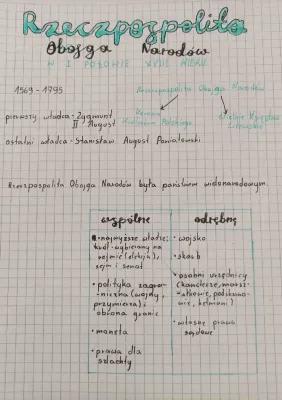 Rzeczpospolita
Obojga Narodów
W I POŁOWIE XVII WIEKU
1569 - 1795
Rzeczpospolita Obojga Narodów
pierwszy władca - Zygmunt
II August
Korona
Królestwa Polskiego
Wielkie Księstwo
Litewskie
ostatni władca - Stanisław August Poniatowski
Rzeczpospolita Obojga Narodów była państwem wielonarodowym.
wspólne
• najwyższe władze:
król wybierany na
sejmie (elekcja),
sejm i senat
• polityka zagra-
niczna (wojny,
przymierza) i
obrona granic
• moneta
• prawa dla
szlachty
odrębne
• wojsko
• skarb
• osobni urzędnicy
(kanclerze, marsz-
ałkowie, podskarbi
owie, hetmani)
• własne prawa
sądowe